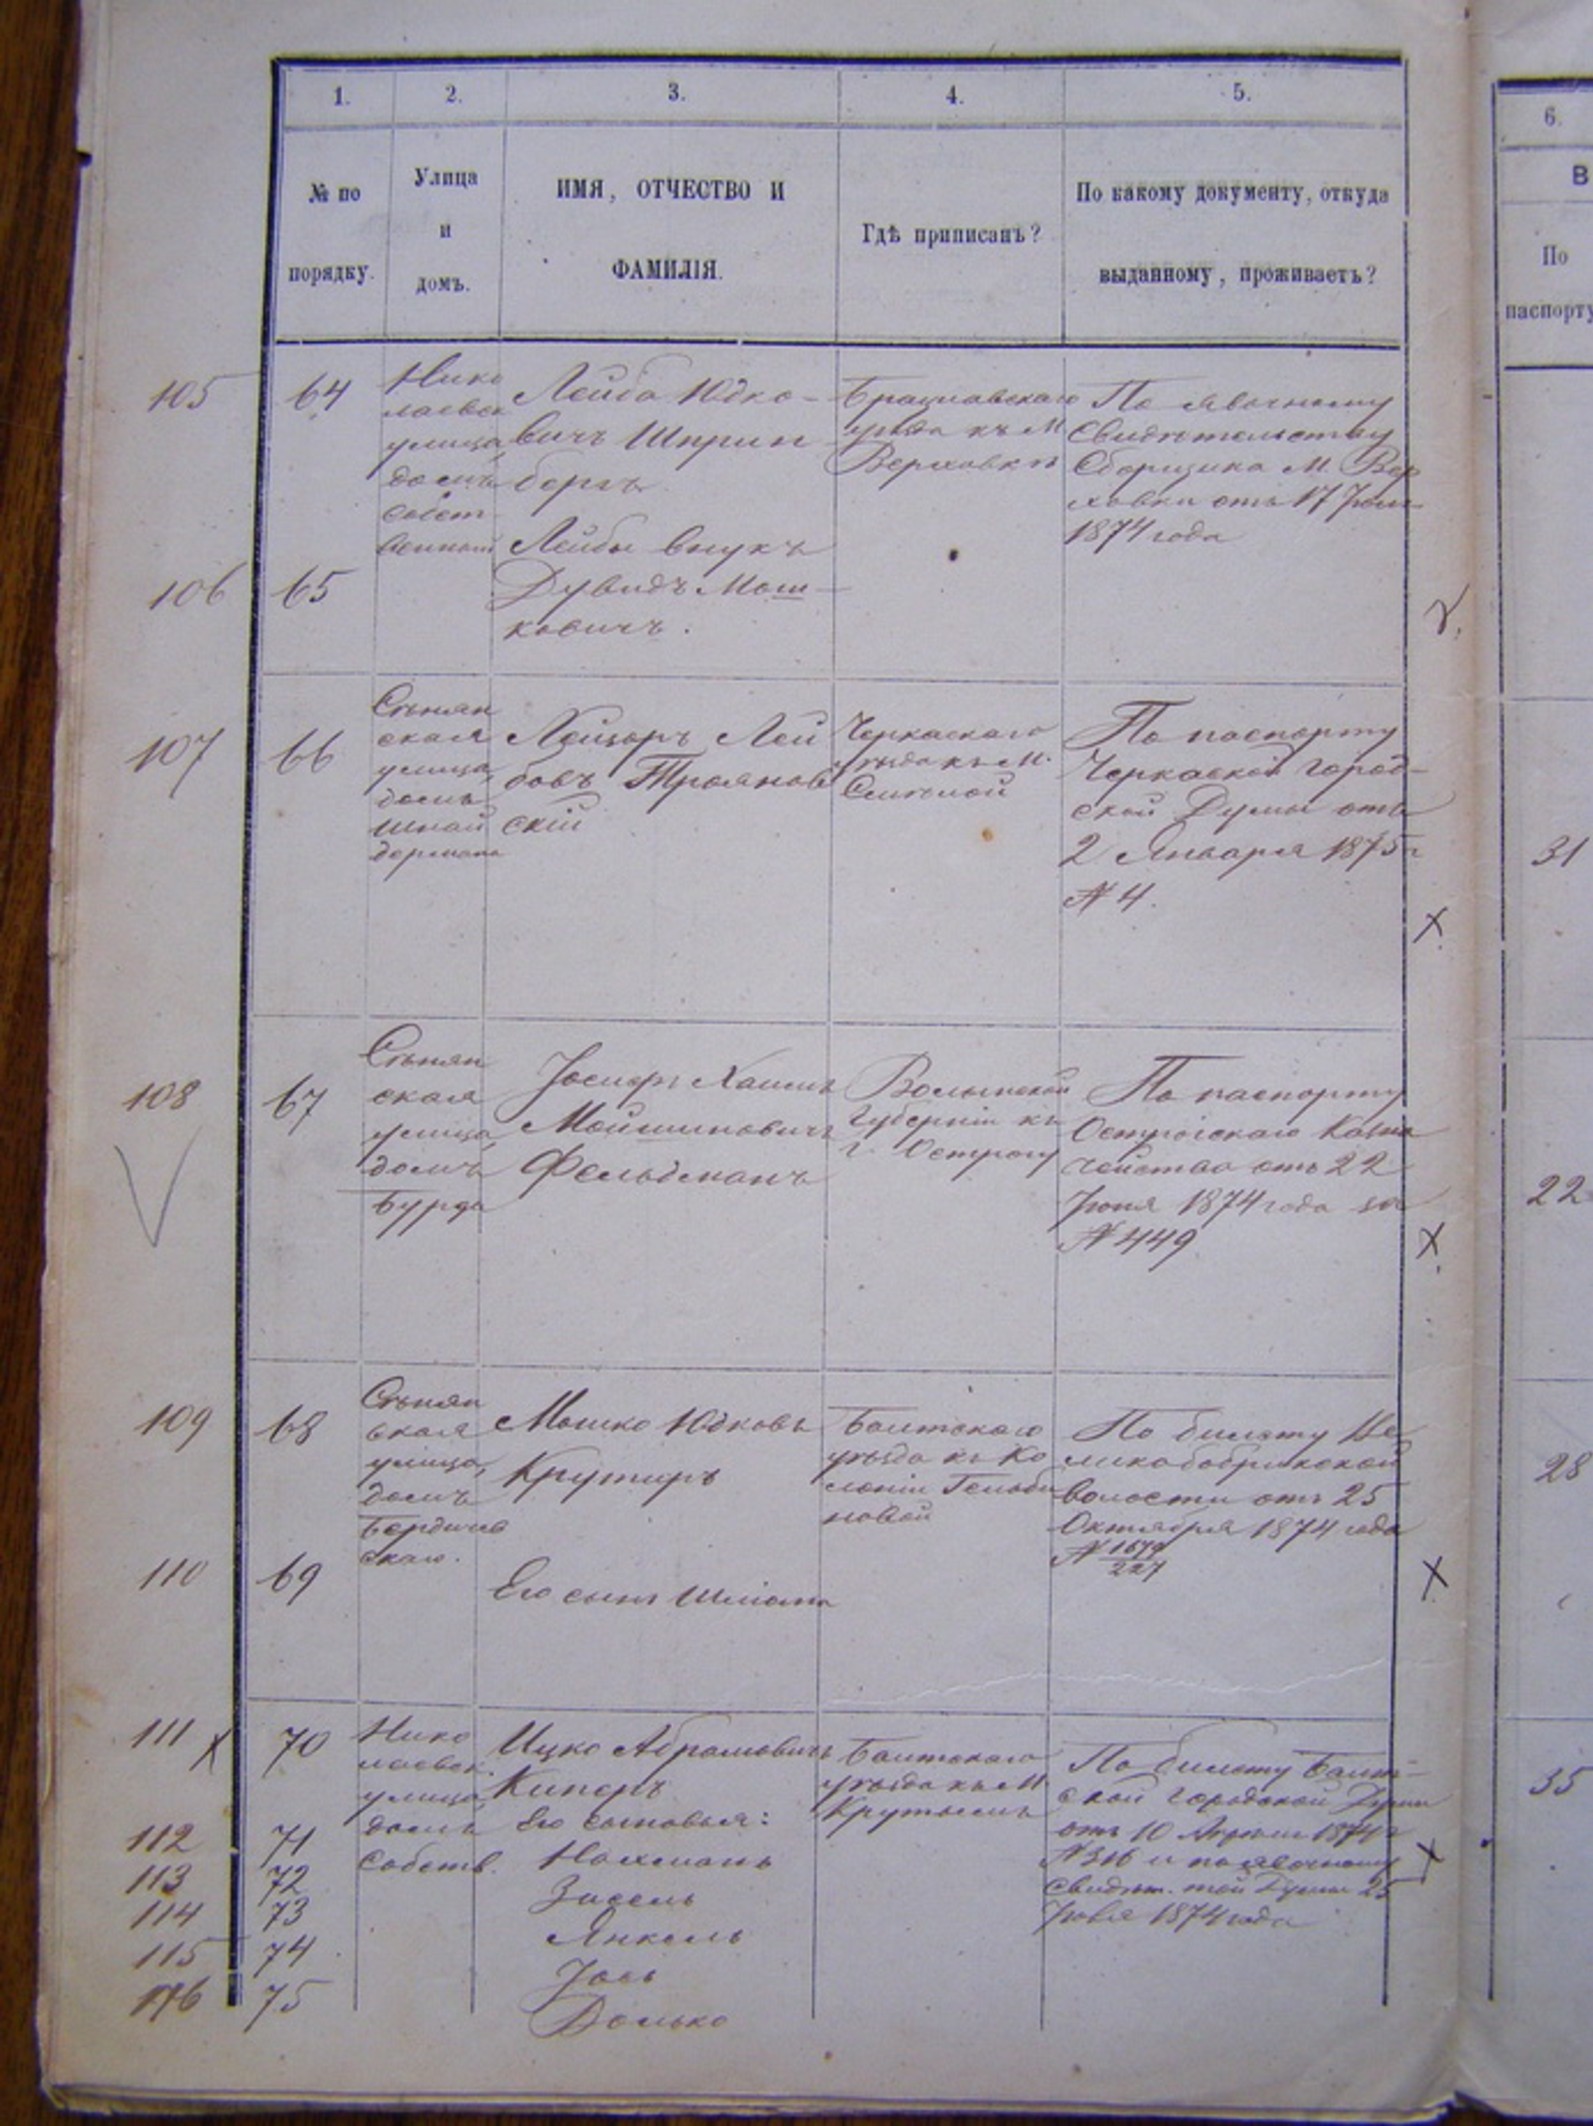 1.
2.
3.
4.
5.
6.
№ по
порядку.
Улица
и
домъ.
ИМЯ, ОТЧЕСТВО И
ФАМИЛІЯ.
Гдѣ приписанъ?
По какому документу, откуда
выданному, проживаетъ?
В
По
паспорту
105
64
Нико
лаевск
улица,
домъ
собст
венный
Лейба Юдко-
вичъ Шприн
бергъ
Брацлавскаго
уѣзда къ М
Верховкѣ
По явочному
Свидѣтельству
Сборщика М. Вер
ховки отъ 17
1874 года
106
65
Лейбы внукъ
Дувидъ Мош-
ковичъ.
107
66
ская
улица,
домъ
Шнай
дермана
Лейзоръ Лей
бовъ Трояновс
скій
Черкаскаго
уѣзда къ М.
По паспорту
Черкаской Город-
ской Думы отъ
2 Января 1875 г
№ 4.
31
108
67
ская
улица,
домъ
Бурда
Іосифъ Хаимъ
Мойшиновичъ
Фельдманъ
Волынской
Губерніи къ
г. Острогу
По паспорту
Острогскаго Казна
чейства отъ 22
Іюня 1874 года за
№ 449
22
109
68
ская
улица,
домъ
Бердичев
скаго.
Мошко Юдковъ
Крутиръ
Балтскаго
уѣзда къ Ко
лоніи
новой
По билету
волости отъ 25
Октября 1874 года
№ 1679
227
28
110
69
Его сынъ Шліома
111
70
Нико
лаевск.
улица,
домъ
Собств.
Ицко Абрамовичъ
Киперъ
Его сыновья:
Балтскаго
уѣзда къ М.
Крутымъ
По билету Балт-
ской Городской Думы
отъ 10 Апрѣля 1874 г
№ 316 и по явочному
Свидѣт. той Думы 25
1874 года
35
112
71
Нахманъ
113
72
Зисель
114
73
Янкель
115
74
Іось
116
75
Волько